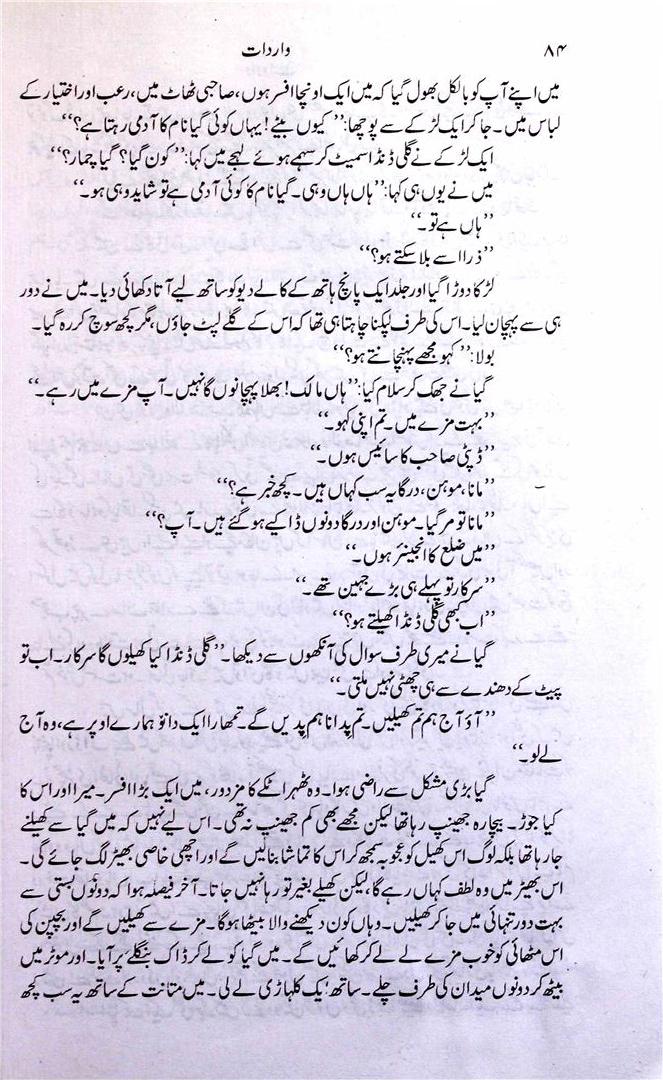 ۸۴ واردات
میں اپنے آپ کو بالکل بھول گیا کہ میں ایک اونچا افسر ہوں، صاحبی ٹھاٹ میں، رعب اور اختیار کے
لباس میں۔ جا کر ایک لڑکے سے پوچھا: ’’کیوں بیٹے! یہاں کوئی گیا نام کا آدمی رہتا ہے؟‘‘
ایک لڑکے نے گلی ڈنڈا سمیٹ کر سہمے ہوئے لہجے میں کہا: ’’کون گیا؟ گیا چمار؟‘‘
میں نے یوں ہی کہا: ’’ہاں ہاں وہی۔ گیا نام کا کوئی آدمی ہے تو شاید وہی ہو۔‘‘
’’ہاں ہے تو۔‘‘
’’ذرا اسے بلا سکتے ہو؟‘‘
لڑکا دوڑا گیا اور جلد ایک پانچ ہاتھ کے کالے دیو کو ساتھ لیے آتا دکھائی دیا۔ میں نے دور
ہی سے پہچان لیا۔ اس کی طرف لپکنا چاہتا ہی تھا کہ اس کے گلے لپٹ جاؤں، مگر کچھ سوچ کر رہ گیا۔
بولا: ’’کہو مجھے پہچانتے ہو؟‘‘
گیا نے جھک کر سلام کیا: ’’ہاں مالک! بھلا پہچانوں گا نہیں۔ آپ مزے میں رہے۔‘‘
’’بہت مزے میں۔ تم اپنی کہو۔‘‘
’’ڈپٹی صاحب کا سائیس ہوں۔‘‘
’’ماتا، موہن، درگا یہ سب کہاں ہیں۔ کچھ خبر ہے؟‘‘
’’ماتا تو مر گیا۔ موہن اور درگا دونوں ڈاکیے ہو گئے ہیں۔ آپ؟‘‘
’’میں ضلع کا انجینئر ہوں۔‘‘
’’سرکار تو پہلے ہی بڑے جہین تھے۔‘‘
’’اب کبھی گلی ڈنڈا کھیلتے ہو؟‘‘
گیا نے میری طرف سوال کی آنکھوں سے دیکھا۔ ’’گلی ڈنڈا کیا کھیلوں گا سرکار۔ اب تو
پیٹ کے دھندے سے ہی چھٹی نہیں ملتی۔‘‘
’’آؤ آج ہم تم کھیلیں۔ تم پدانا ہم پدیں گے۔ تمھارا ایک داؤ ہمارے اوپر ہے، وہ آج
لے لو۔‘‘
گیا بڑی مشکل سے راضی ہوا۔ وہ ٹھہرا ٹکے کا مزدور، میں ایک بڑا افسر۔ میرا اور اس کا
کیا جوڑ۔ بیچارہ جھینپ رہا تھا لیکن مجھے بھی کم جھینپ نہ تھی۔ اس لیے نہیں کہ میں گیا سے کھیلنے
جا رہا تھا بلکہ لوگ اس کھیل کو عجوبہ سمجھ کر اس کا تماشا بنا لیں گے اور اچھی خاصی بھیڑ لگ جائے گی۔
اس بھیڑ میں وہ لطف کہاں رہے گا، لیکن کھیلے بغیر تو رہا نہیں جاتا۔ آخر فیصلہ ہوا کہ دونوں بستی سے
بہت دور تنہائی میں جا کر کھیلیں۔ وہاں کون دیکھنے والا بیٹھا ہوگا۔ مزے سے کھیلیں گے اور بچپن کی
اس مٹھائی کو خوب مزے لے لے کر کھائیں گے۔ میں گیا کو لے کر ڈاک بنگلے پر آیا۔ اور موٹر میں
بیٹھ کر دونوں میدان کی طرف چلے۔ ساتھ ایک کلہاڑی لے لی۔ میں متانت کے ساتھ یہ سب کچھ